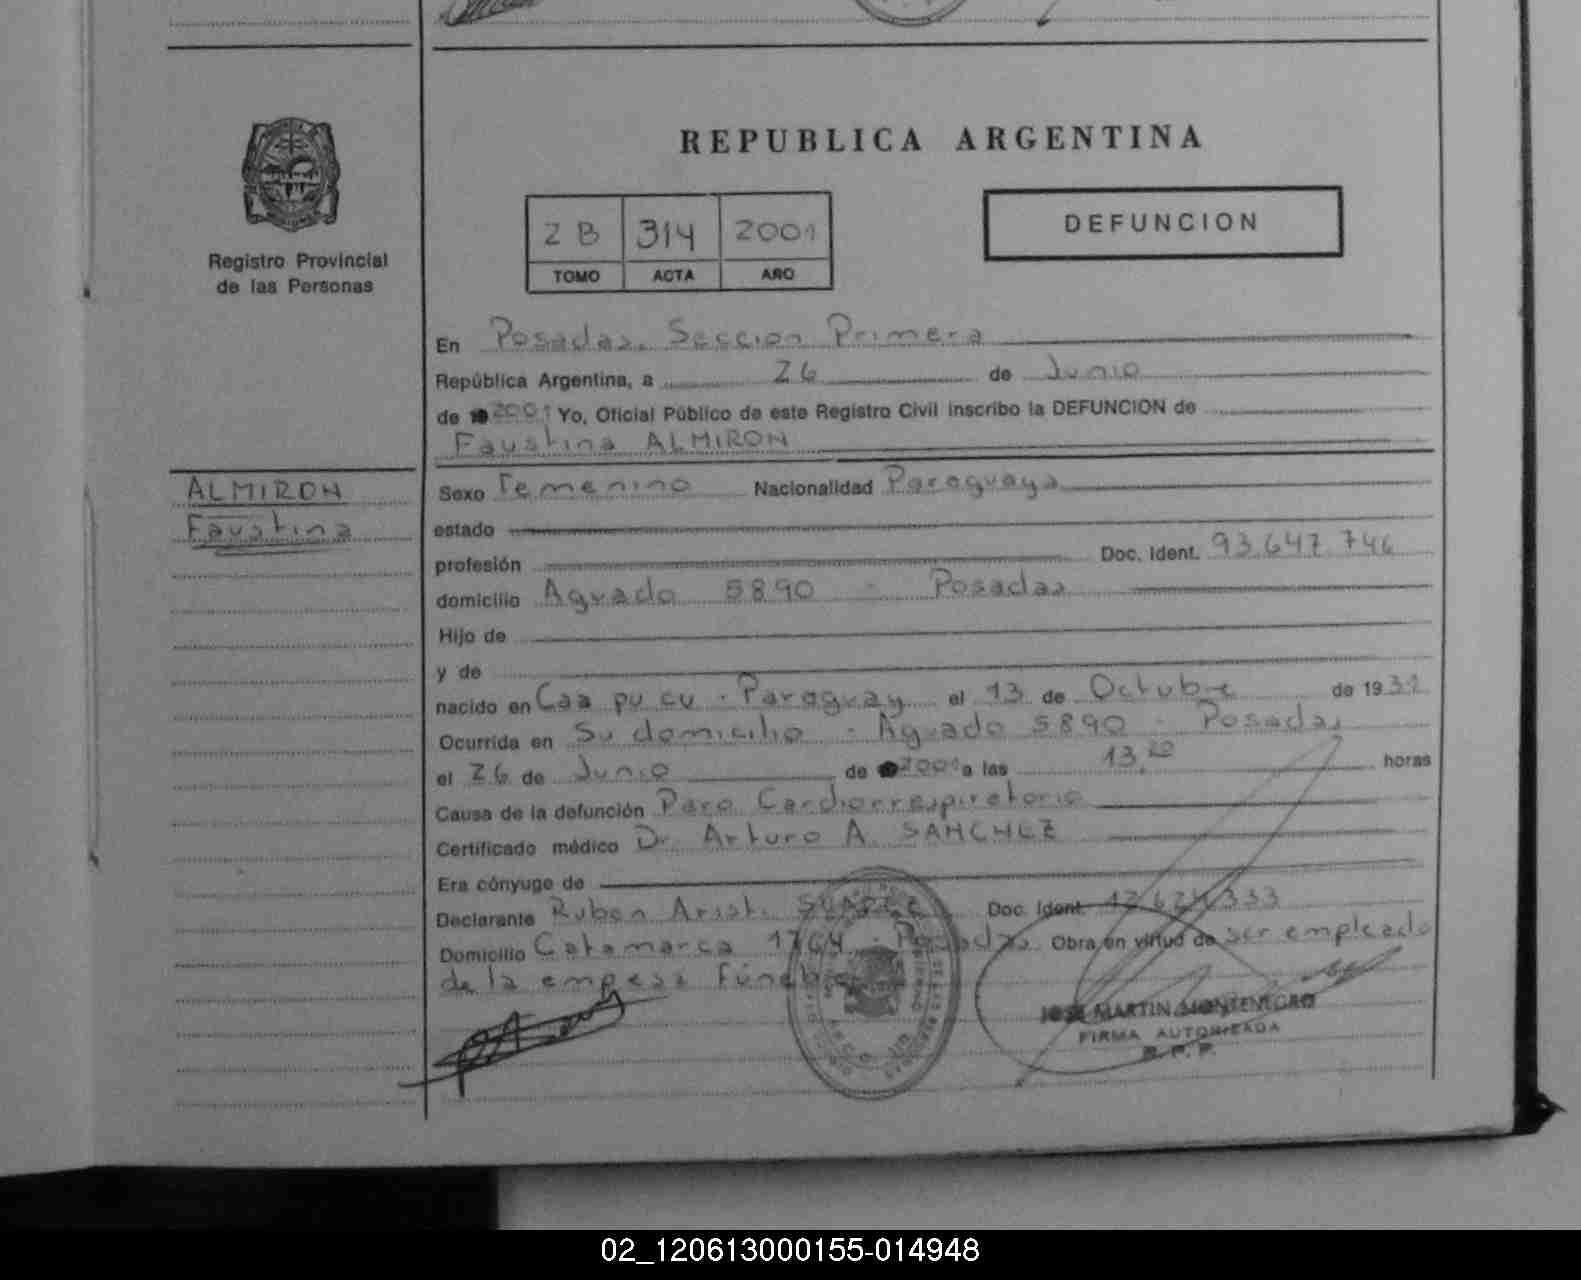 REPUBLICA ARGENTINA
Registro Provincial
de las Personas
2B 314 2001
TOMO ACTA AÑO
DEFUNCION
En Posadas. Seccion Primera
República Argentina, a 26 de Junio
de 2001 Yo, Oficial Público de este Registro Civil inscribo la DEFUNCION de
Faustina ALMIRON
ALMIRON
Faustina
Sexo Femenino Nacionalidad Paraguaya
estado
profesión Doc. Ident. 93.647.746
domicilio Aguado 5890 - Posadas
Hijo de
y de
nacido en Caa pu cu - Paraguay el 13 de Octubre de 19
Ocurrida en Su domicilio - Aguado 5890 - Posadas
el 26 de Junio de 2001 a las 13,20 horas
Causa de la defunción Paro Cardiorrespiratorio
Certificado médico Dr. Arturo A. SANCHEZ
Era cónyuge de
Declarante Ruben Arist. Doc. Ident.
Domicilio Catamarca 1764 - Posadas Obra en virtud de ser empleado
de la empesa Fúnebre
JOSE MARTIN MONTENEGRO
FIRMA AUTORIZADA
R. P. P.
02_120613000155-014948